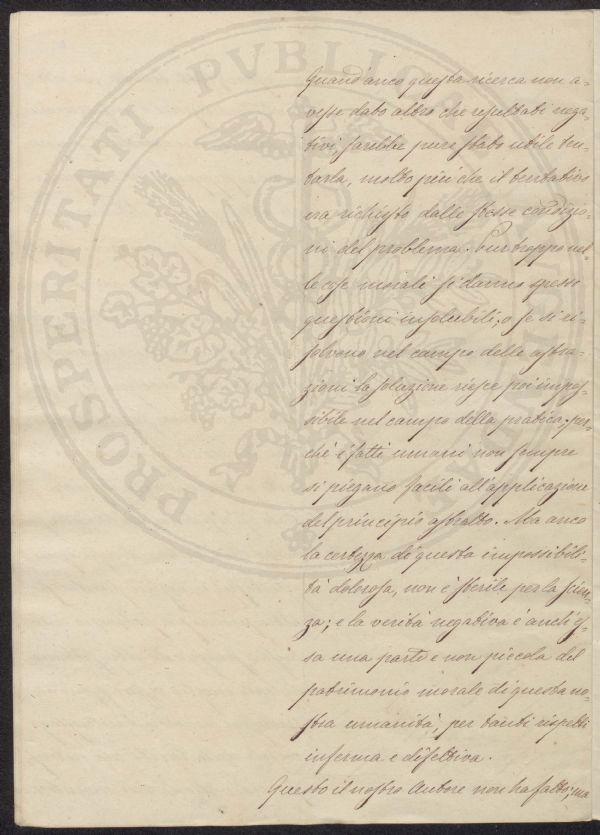 Quand'anco questa ricerca non a-
vesse dato altro che resultati nega-
tivi, sarebbe pure stato utile ten-
tarla, molto più che il tentativo
era richiesto dalle stesse condizio-
ni del problema. Pur troppo nel-
le cose morali si danno spesso
questioni insolubili; o se si ri-
solvono nel campo delle astra-
zioni la soluzione riesce poi impos-
sibile nel campo della pratica; per-
chè i fatti umani non sempre
si piegano facili all'applicazione
del principio astratto. Ma anco
la certezza di questa impossibili-
tà dolorosa, non è sterile per la scien-
za; e la verità negativa è anch'es-
sa una parte e non piccola del
patrimonio morale di questa no-
stra umanità, per tanti rispetti
inferma e difettiva.
Questo il nostro Autore non ha fatto; ma
PROSPERITATI PVBLICAE